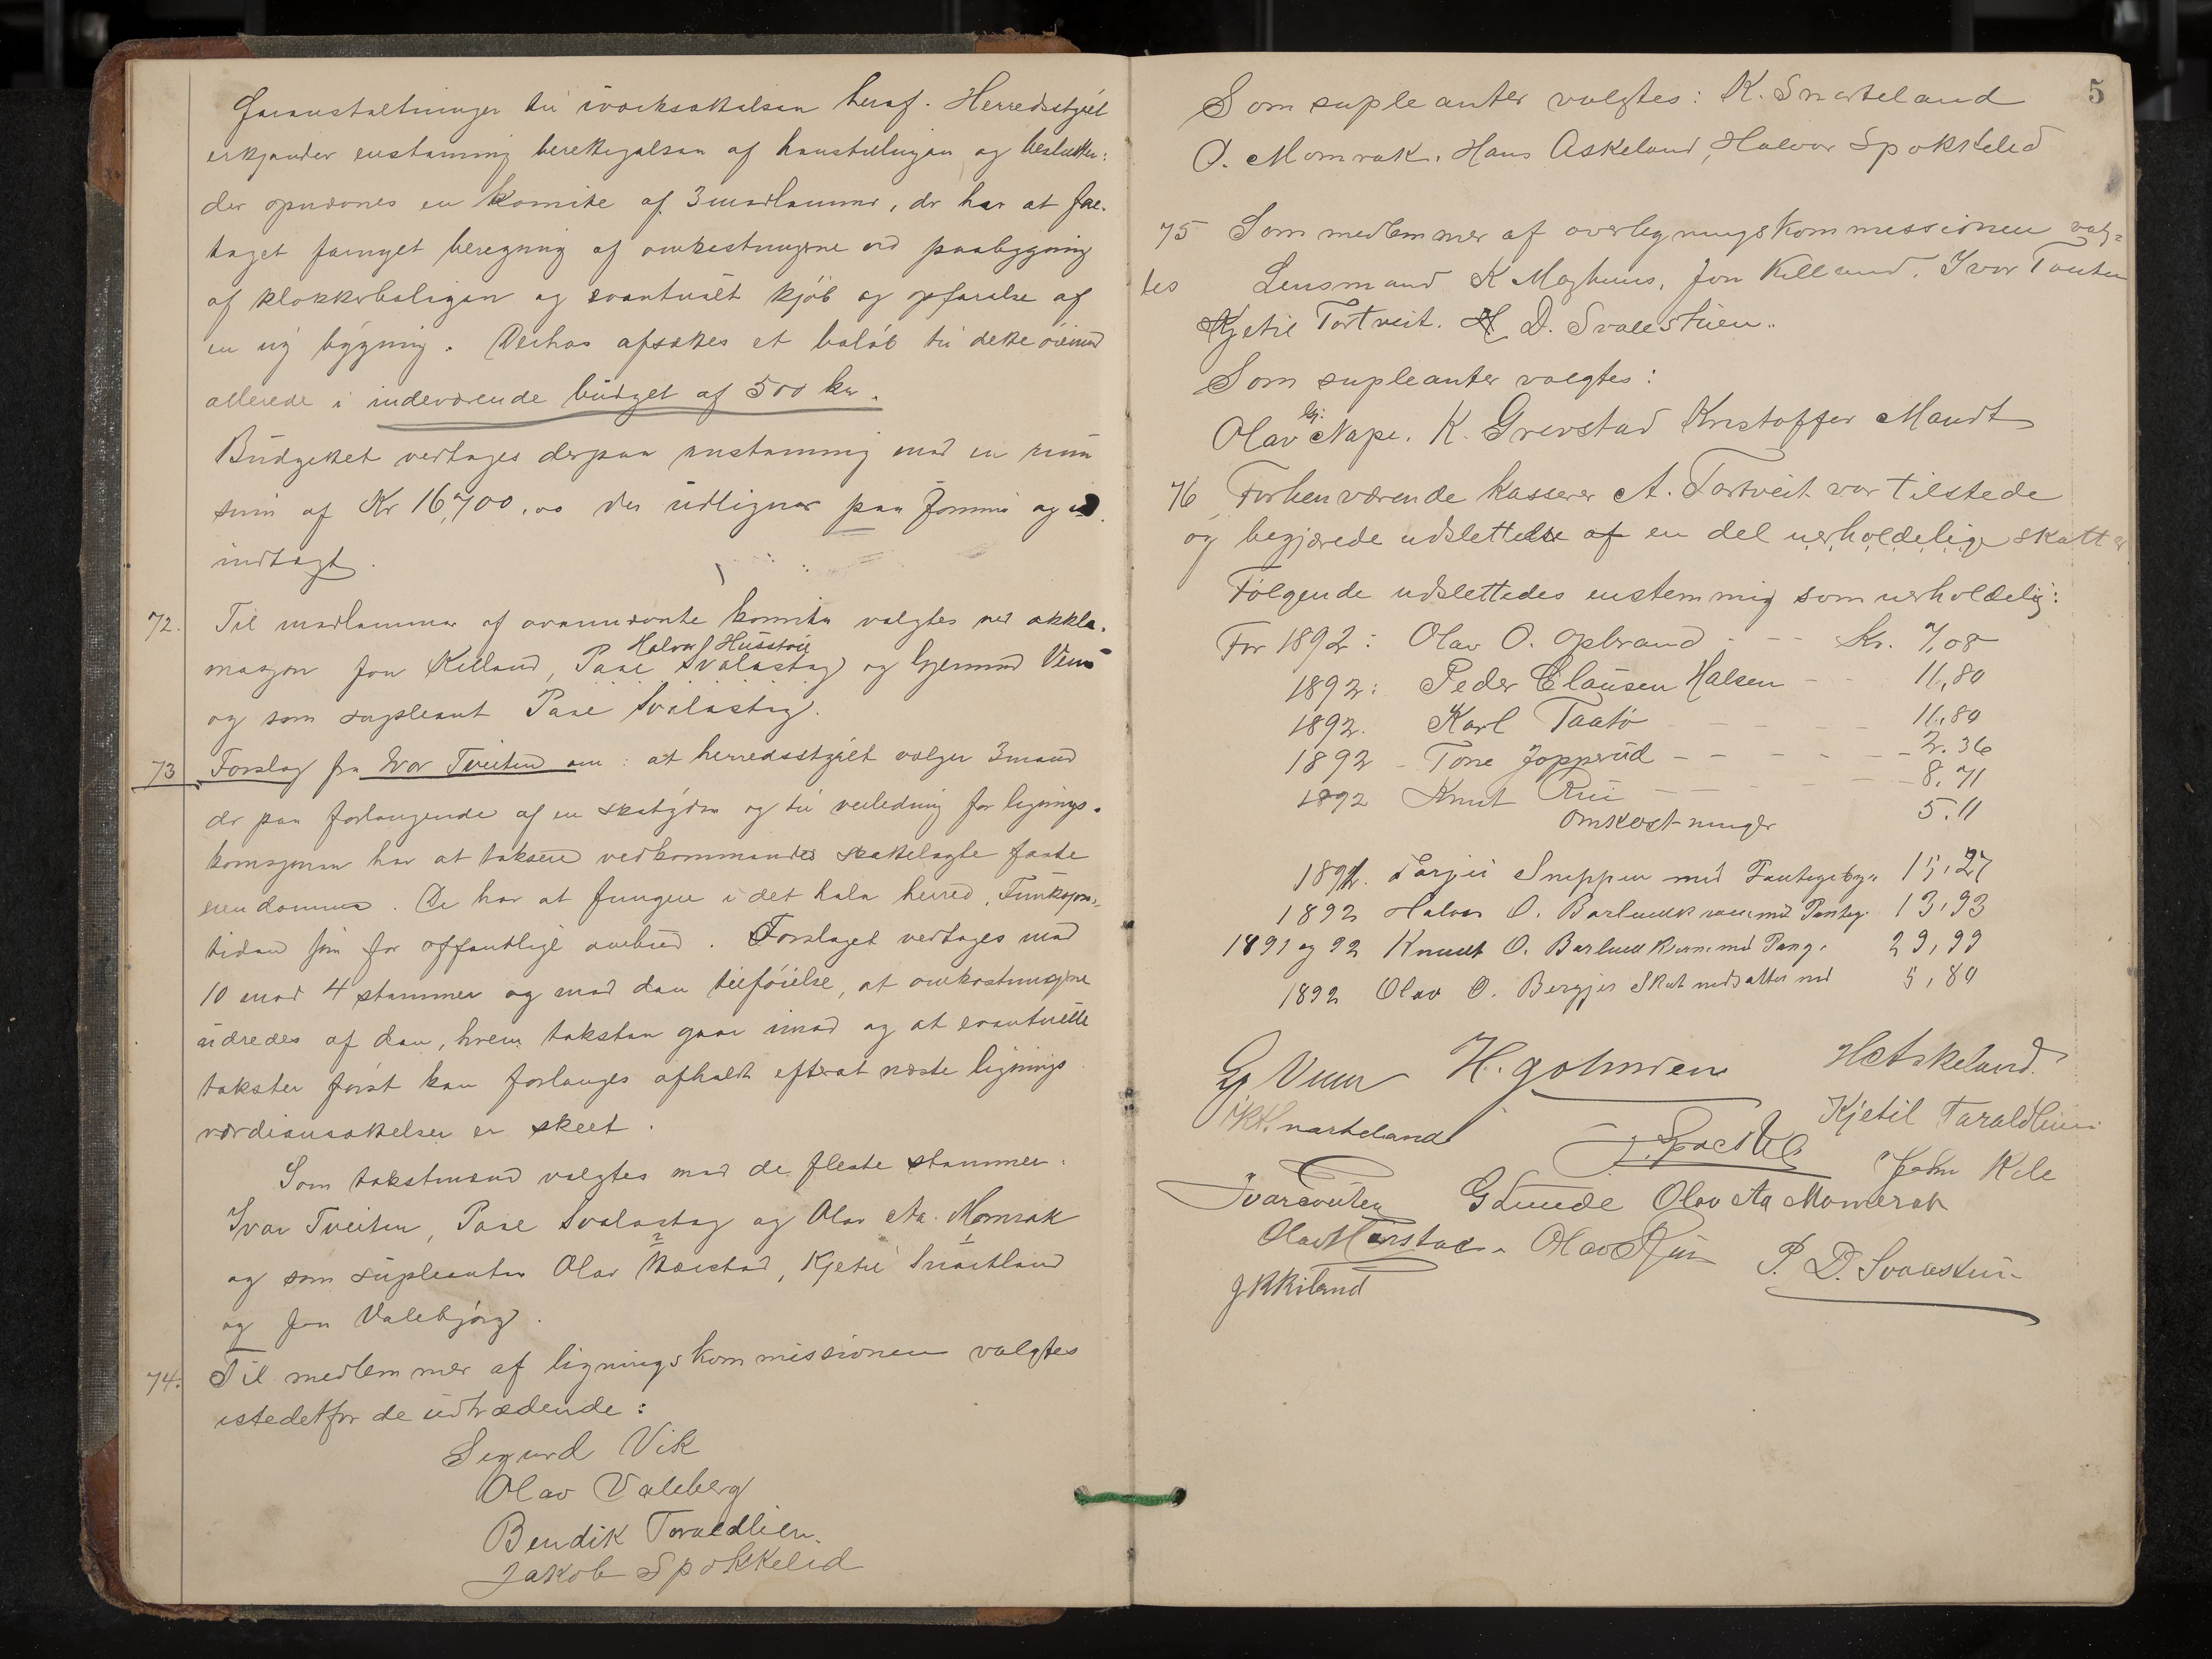 foranstaltninger til iværksættelsen heraf. Herredsstyret
erkjender enstemmig berettigelsen af henstillingen og beslutter:
der opnævnes en komite af 3 medlemmer, der har at fore-
taget fornyet beregning af omkostningerne ved paabygning
af klokkerboligen og eventuelt kjøb og opførelse af
en ny bygning. Derhos afsættes et beløb til dette øiemed
allerede i indeværende budget af 500 kr.
Budgettet vedtages derpaa enstemmig med en
sum af Kr 16,700.00 der udlignes paa formue og
indtægt.
72. Til medlemmer af ovennævnte komite valgtes ved akkla-
Halvor Husstøil
masjon Jon Killand, Paal Svalastog og Gjermund Vinu
og som supleant Paal Svalastog.
73 Forslag fra Ivar Tveiten om: at herredsstyret vælger 3 mænd
der paa forlangende af en skatyder og til veiledning for lignings-
komisjonen har at taksere vedkommendes skatlagte faste
eiendomme. De har at fungere i det hele herred. Funksjons-
tiden som for offentlige ombud. Forslaget vedtages med
10 mod 4 stemmer og med den tilføielse, at omkostningerne
udredes af den, hvem taksten gaar imod og at eventuelle
takster først kan forlanges afholdt efterat næste lignings
værdiansættelser er skeet.
Som takstmænd valgtes med de fleste stemmer.
Ivar Tveiten, Paal Svalastog og Olav Aa. Momrak
og som supleanter Olav Kærstad, Kjetil Snartland
og Jon Valebjørg.
74. Til medlemmer af ligningskommissionen valgtes
istedetfor de udtrædende:
Sigurd Vik
Olav Valeberg
Bendik Toraldlien
Jakob Spokkelid
5
Som supleanter valgtes: K. Snarteland
O. Momrak. Hans Askeland, Halvor Spokkelid
75 Som medlemmer af overligningskommissionen valg-
tes Lensmand K Moghuus, Jon Killand. Ivar Tveiten
Kjetil Tortveit. D. Svalestuen.
Som supleanter valgtes:
Olav Gj: Nape. K. Grevstad Kristoffer Mandt
76 Forhenværende kasserer A. Tortveit var tilstede
og begjærede udslettelse af en del uerholdelige skatter
Følgende udslettedes enstemmig som uerholdelig:
For 1892: Olav O. Opbrand - - - Kr. 7,08
1892: Peder Clausen Halsen - - 11,80
1892. Karl Taatø - - - 11,80
1892 - Tone Jopperud - - - - 2.36
1892 Knut Rui - - - 8.71
Omkostninger 5.11
1892. Torjus Sneppen med 15,27
1892 Halvor O. med 13,93
1891 og 92 Knut O. med 29,99
1892 Olav O. Bergjer Skat nedsættes med 5,80
Gj Vinu H. Holmsen H Askeland.
K H Snarteland J. Spokkeli Kjetil Taraldlien
John Kile
Ivar Tveiten G Lunde Olav Aa Momrak
Olav Hærstad. Olav Rui P. D. Svalestuen
J K Kiland